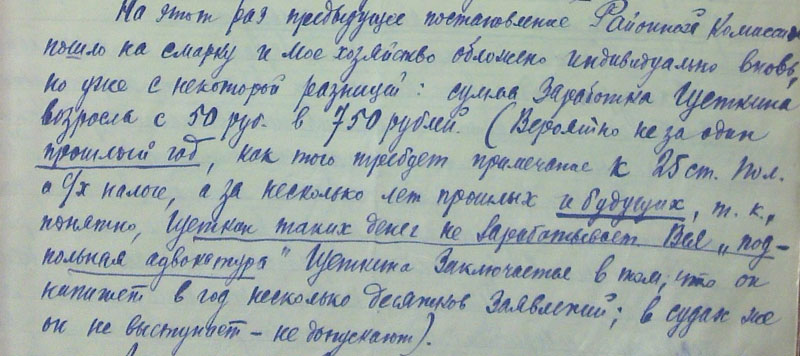 На этот раз предыдущее постановление Районной Комиссии
пошло на смарку и мое хозяйство обложено индивидуально вновь,
но уже с некоторой разницей: сумма Заработка Густкина
возросла с 50 руб. в 750 рублей. (Вероятно не за один
прошлый год, как того требует примечание к 25 ст. Пол.
о с/х налоге, а за несколько лет прошлых и будущих, т. к.,
понятно, Густкин таких денег не Зарабатывает. Вся „под-
польная адвокатура" Густкина Заключается в том, что он
напишет в год несколько десятков Заявлений; в судах же
он не выступает – не допускают).